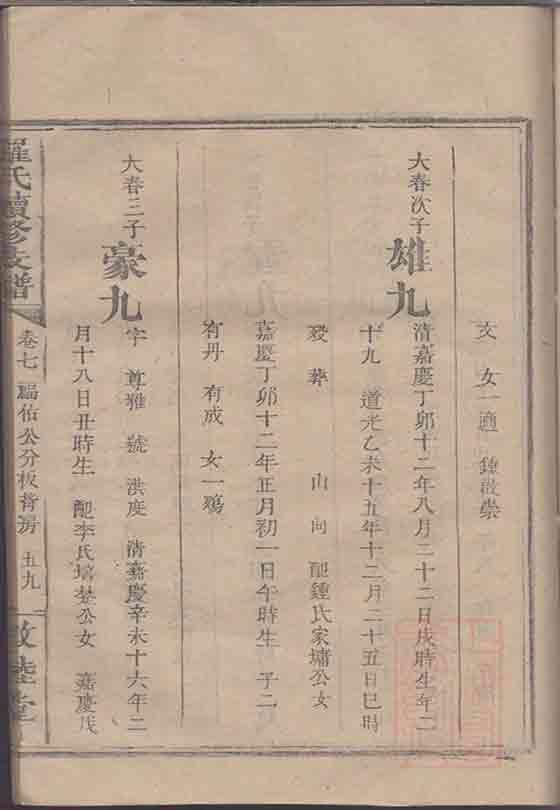 文 女一適 鍾啟崇
大春次子
雄九
清嘉慶丁卯十二年八月二十二日戌時生年二
十九 道光乙未十五年十二月二十五日巳時
歿葬 山 向 配鍾氏家墉公女
嘉慶丁卯十二年正月初一日午時生 子二
有丹 有成 女一鴉
大春三子
豪九
字 尊雅 號 洪度 清嘉慶辛未十六年二
月十八日丑時生 配李氏培鏊公女 嘉慶戊
羅氏續修支譜
卷七 福佑公分板背房 五九
敦睦堂